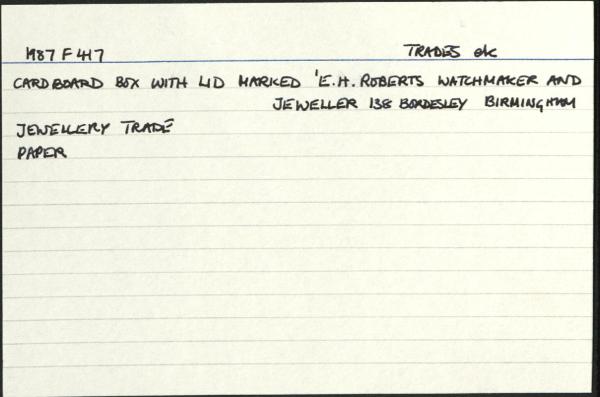 1987 F 417 TRADES etc
CARDBOARD BOX WITH LID MARKED 'E.H. ROBERTS WATCHMAKER AND
JEWELLER 138 BORDESLEY BIRMINGHAM
JEWELLERY TRADE
PAPER